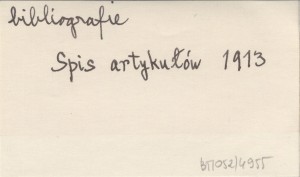 bibliografie
Spis artykułów 1913
BT/052/4955